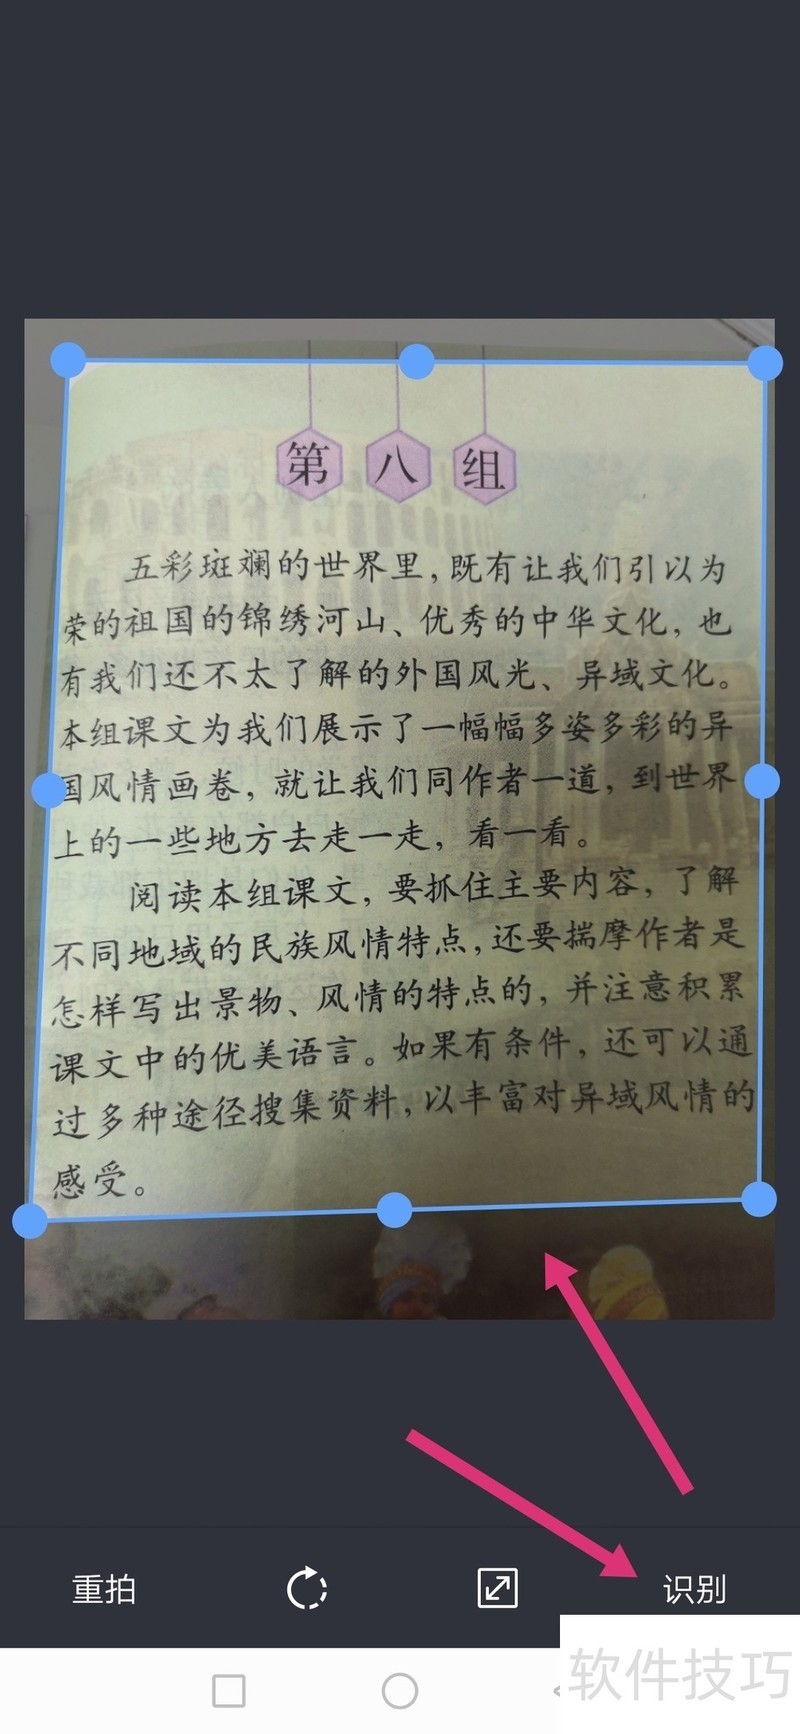 第八组
五彩斑斓的世界里,既有让我们引以为
荣的祖国的锦绣河山、优秀的中华文化,也
有我们还不太了解的外国风光、异域文化。
本组课文为我们展示了一幅幅多姿多彩的异
国风情画卷,就让我们同作者一道,到世界
上的一些地方去走一走,看一看。
阅读本组课文,要抓住主要内容,了解
不同地域的民族风情特点,还要揣摩作者是
怎样写出景物、风情的特点的,并注意积累
课文中的优美语言。如果有条件,还可以通
过多种途径搜集资料,以丰富对异域风情的
感受。
重拍
识别
软件技巧